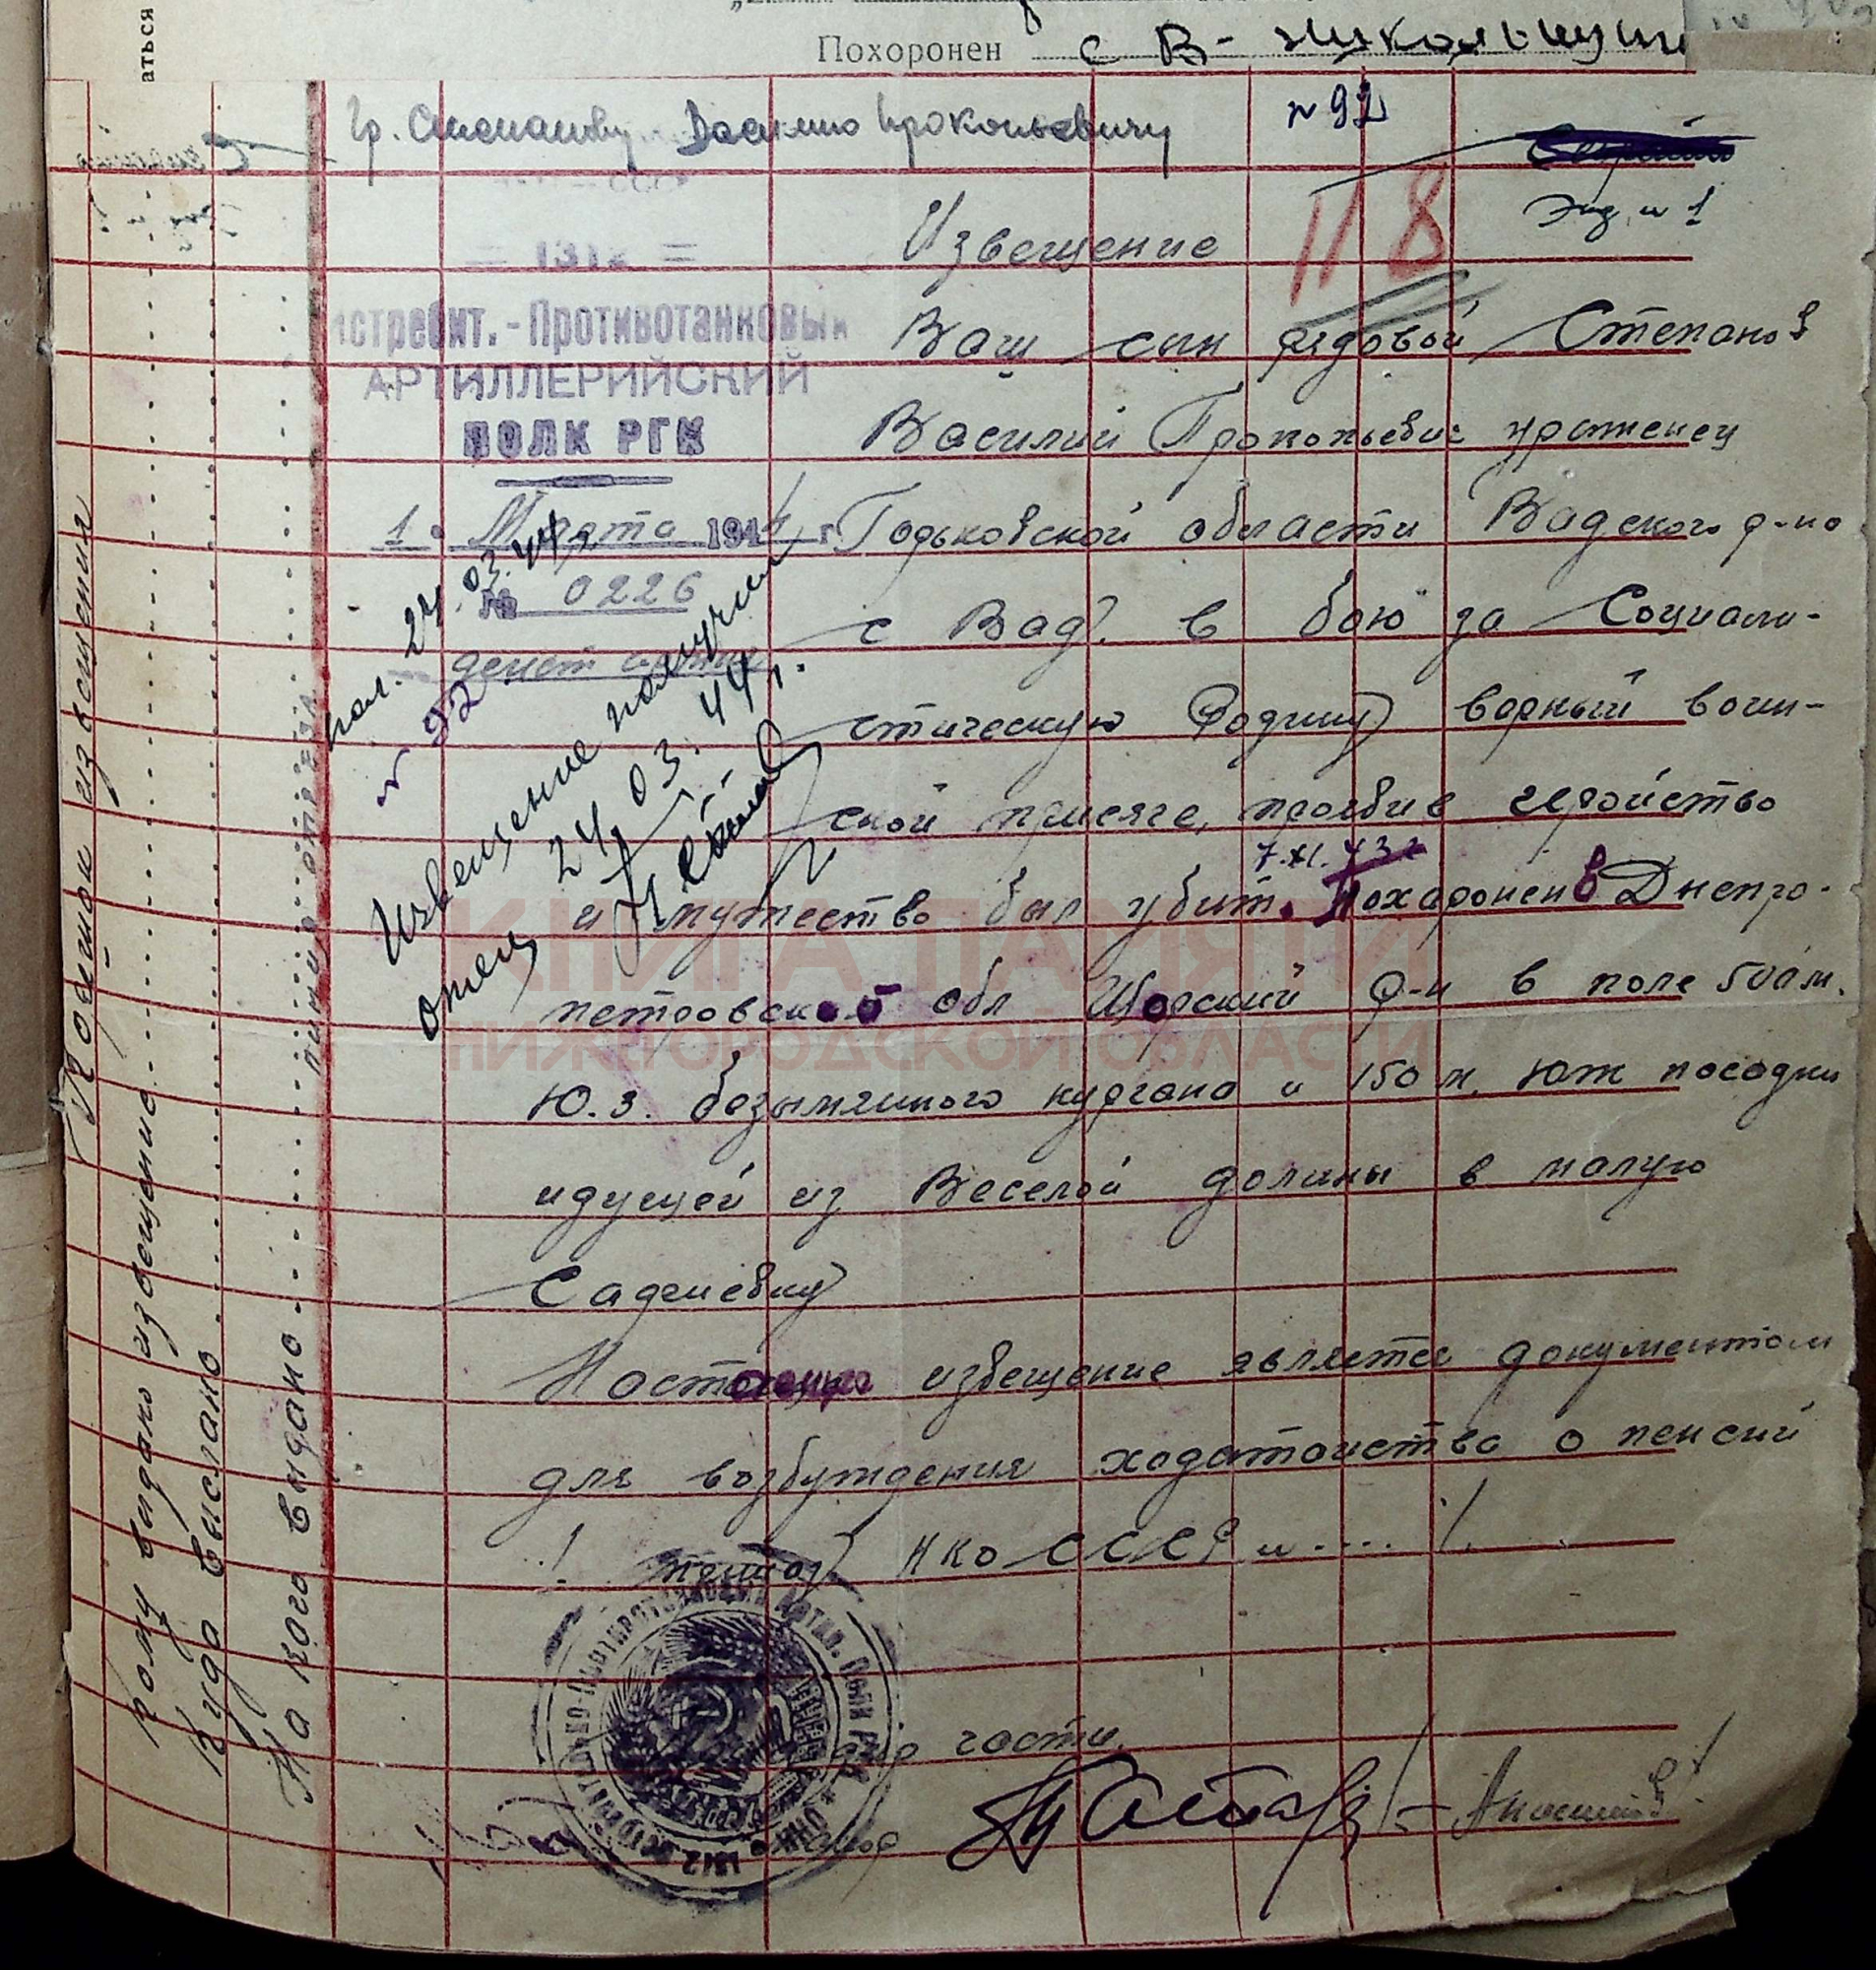 аться
Похоронен с В-
Гр. Степанову Василию Прокопьевичу
№ 92
Экз. № 1
= 1312 =
истребит.-Противотанковый
АРТИЛЛЕРИЙСКИЙ
ПОЛК РГК
1. Марта 1944 г.
№ 0226
118
Извещение
Ваш сын рядовой Степанов
Василий Прокопьевич уроженец
Горьковской области Вадского р-на
с Вад. в бою за Социали-
стическую Родину верный воин-
ской присяге, проявив геройство
7.XI.43 г
и мужество был убит. Похоронен в Днепро-
петровской обл Щорский р-н в поле 500 м.
Ю.З. безымянного кургана и 150 м. Юж посадки
идущей из Веселой долины в малую
Садчиевку
Настоящее извещение является документом
для возбуждения ходатайства о пенсии
НКО СССР №....
части.
пол. 24 03.44 г
№ 92
Извещение получил
24 03. 44 г.
отец
Корешок извещения
Кому выдано извещение
Куда выслано
На кого выдано
КНИГА ПАМЯТИ
НИЖЕГОРОДСКОЙ ОБЛАСТИ